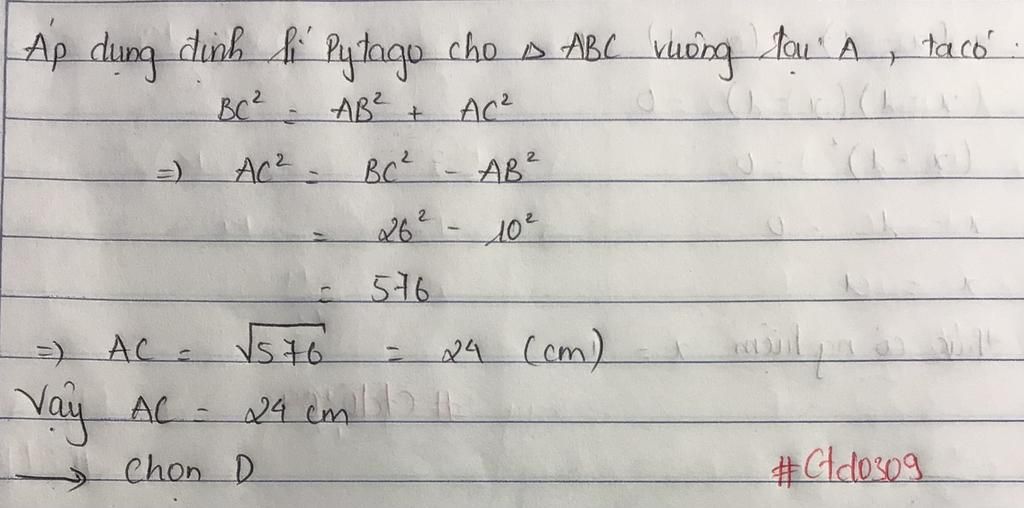 Áp dụng định lí Pytago cho △ ABC vuông tại A, ta có:
BC² = AB² + AC²
=) AC² = BC² - AB²
= 26² - 10²
= 576
=) AC = √576 = 24 (cm)
Vậy AC = 24 cm
→ Chọn D
#Ctcl0309